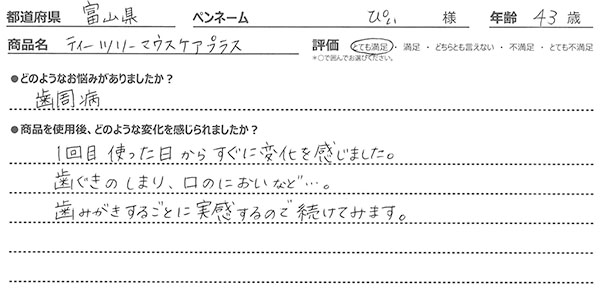 都道府県 富山県 ペンネーム ぴぃ 様 年齢 43 歳
商品名 ティーツリーマウスケアプラス 評価 とても満足・満足・どちらとも言えない・不満足・とても不満足
*○で囲んでお選びください。
●どのようなお悩みがありましたか?
歯周病
●商品を使用後、どのような変化を感じられましたか?
1回目使った日からすぐに変化を感じました。
歯ぐきのしまり、口のにおいなど…。
歯みがきするごとに実感するので続けてみます。